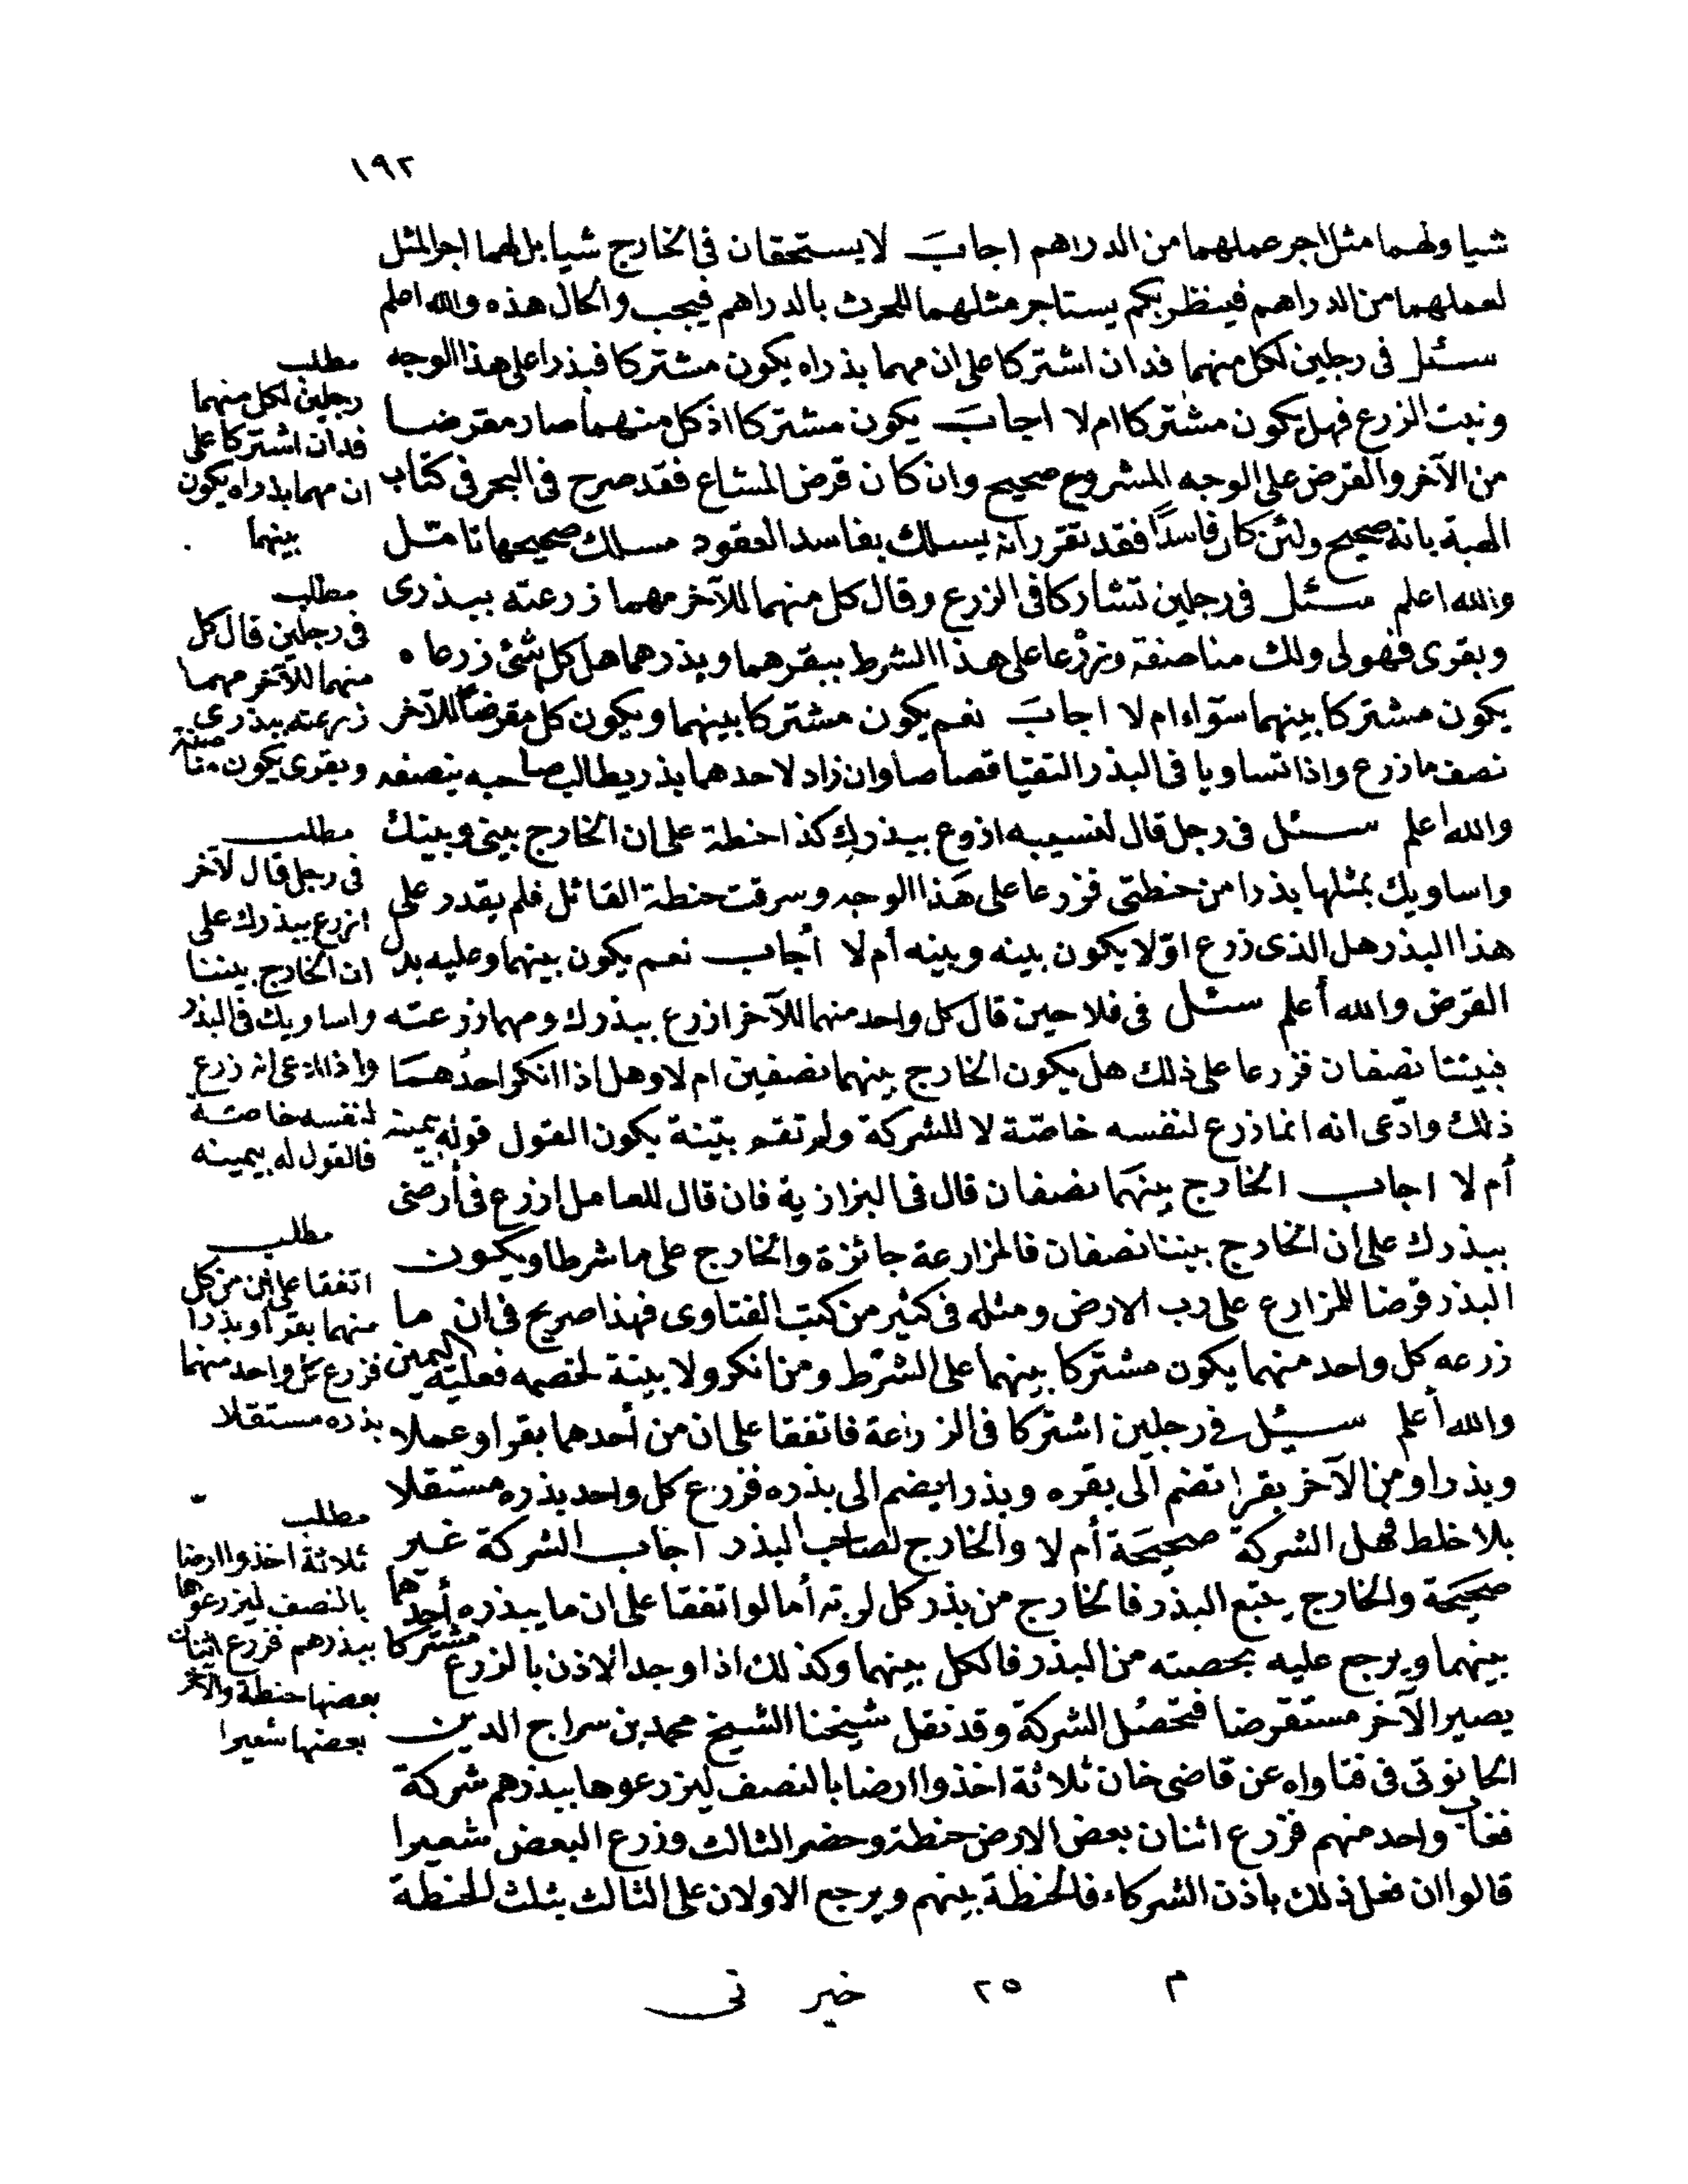 ١٩٢
شيا ولهما مثل اجر عملهما من الدراهم اجاب لا يستحقان فى الخارج شيا بل لهما اجر المثل
لعملهما من الدراهم فينظر بكم يستاجر مثلهما للحرث بالدراهم فيجب والحال هذه والله اعلم
سئل فى رجلين لكل منهما فدان اشتركا على ان مهما بذراه يكون مشتركا فبذرا على هذا الوجه
ونبت الزرع فهل يكون مشتركا ام لا اجاب يكون مشتركا اذ كل منهما صار مقرضا
من الآخر والقرض على الوجه المشروع صحيح وان كان قرض المشاع فقد صرح فى البحر فى كتاب
الهبة بانه صحيح ولئن كان فاسدًا فقد تقرر انه يسلك بفاسد العقود مسلك صحيحها تامّل
والله اعلم سئل فى رجلين تشاركا فى الزرع وقال كل منهما للآخر مهما زرعته ببذرى
وبقرى فهو لى ولك مناصفة وزرعا على هذا الشرط ببقرهما وبذرهما هل كل شئ زرعاه
يكون مشتركا بينهما سواء ام لا اجاب نعم يكون مشتركا بينهما ويكون كل مقرضا للآخر
نصف ما زرع واذا تساويا فى البذر التقيا قصاصا وان زاد لاحدهما بذر يطالب صاحبه بنصفه
والله اعلم سئل فى رجل قال لنسيبه ازرع ببذرك كذا حنطة على ان الخارج بينى وبينك
واساويك بمثلها بذرا من حنطتى فزرعا على هذا الوجه وسرقت حنطة القائل فلم يقدر على
هذا البذر هل الذى زرع اوّلا يكون بينه وبينه أم لا أجاب نعم يكون بينهما وعليه بدل
القرض والله أعلم سئل فى فلاحين قال كل واحد منهما للآخر ازرع ببذرك ومهما زرعته
فبيننا نصفان فزرعا على ذلك هل يكون الخارج بينهما نصفين ام لا وهل اذا انكر احدهما
ذلك وادّعى انه انما زرع لنفسه خاصّة لا للشركة ولم تقم بيّنة يكون القول قوله بيمينه
أم لا اجاب الخارج بينهما نصفان قال فى البزازية فان قال للعامل ازرع فى أرضى
ببذرك على ان الخارج بيننا نصفان فالمزارعة جائزة والخارج على ما شرطا ويكون
البذر قرضا للمزارع على رب الارض ومثله فى كثير من كتب الفتاوى فهذا صريح فى ان ما
زرعه كل واحد منهما يكون مشتركا بينهما على الشرط ومن انكر ولا بينة لخصمه فعليه اليمين
والله أعلم سئل فى رجلين اشتركا فى الزراعة فاتفقا على ان من أحدهما بقرا وعملا
وبذرا ومن الآخر بقرا تضم الى بقره وبذرا يضم الى بذره فزرع كل واحد بذره مستقلا
بلا خلط فهل الشركة صحيحة أم لا والخارج لصاحب البذر اجاب الشركة غير
صحيحة والخارج يتبع البذر فالخارج من بذر كل لربه أما لو اتفقا على ان ما يبذره أحدهما
بينهما ويرجع عليه بحصته من البذر فالكل بينهما وكذلك اذا وجد الاذن بالزرع مشتركا
يصير الآخر مستقرضا فتحصل الشركة وقد نقل شيخنا الشيخ محمد بن سراج الدين
الحانوتى فى فتاواه عن قاضى خان ثلاثة اخذوا ارضا بالنصف ليزرعوها ببذرهم شركة
فغاب واحد منهم فزرع اثنان بعض الارض حنطة وحضر الثالث وزرع البعض شعيرا
قالوا ان فعل ذلك باذن الشركاء فالحنطة بينهم ويرجع الاولان على الثالث بثلث الحنطة
مطلب
رجلين لكل منهما
فدان اشتركا على
ان مهما بذراه يكون
بينهما
مطلب
فى رجلين قال كل
منهما للآخر مهما
زرعته ببذرى
وبقرى يكون مناصفة
مطلب
فى رجل قال لآخر
ازرع ببذرك على
ان الخارج بيننا
واساويك فى البذر
واذا ادعى انه زرع
لنفسه خاصة
فالقول له بيمينه
مطلب
اتفقا على ان من كل
منهما بقرا وبذرا
فزرع كل واحد منهما
بذره مستقلا
مطلب
ثلاثة اخذوا ارضا
بالنصف ليزرعوها
ببذرهم فزرع اثنان
بعضها حنطة والآخر
بعضها شعيرا
م ٢٥ خير نى